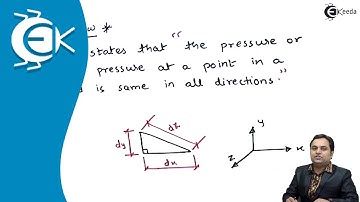 EKeeda
w *
states that the pressure or
pressure at a point in a
is same in all directions."
dz
y
dy
x
z
dx